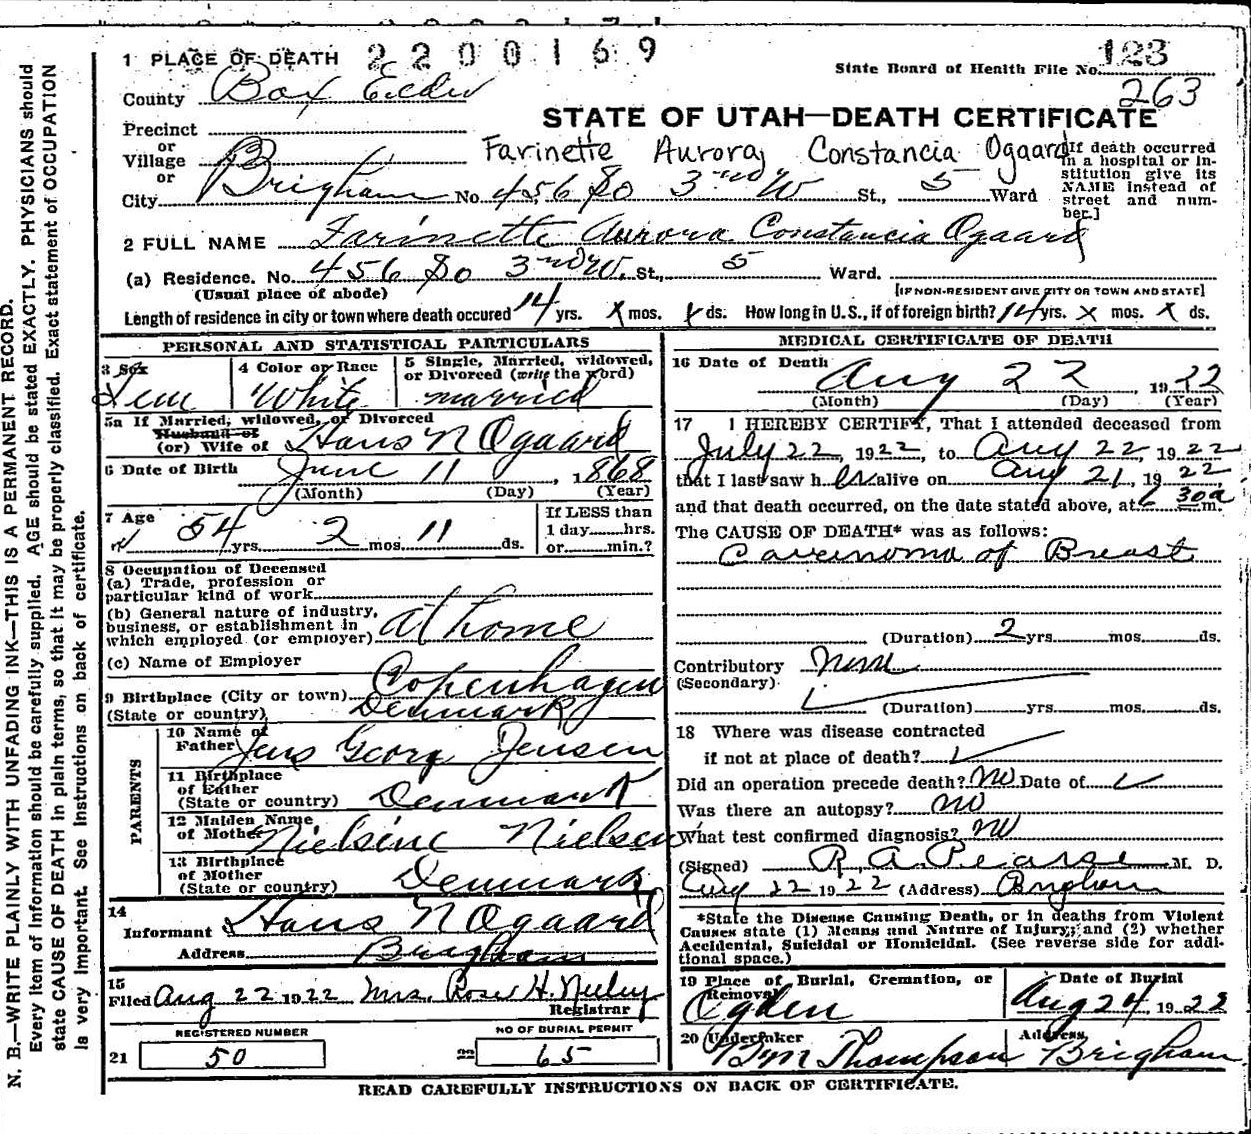 1 PLACE OF DEATH 2200169
State Board of Health File No. 123
263
County Box Elder
STATE OF UTAH—DEATH CERTIFICATE
Precinct
or
Village
or
City Brigham No 456 So 3rd W St., 5 Ward
Farinette Aurora Constancia Ogaard
[If death occurred in a hospital or institution give its NAME instead of street and number.]
2 FULL NAME Farinette Aurora Constancia Ogaard
(a) Residence. No. 456 So 3rd W. St., 5 Ward.
(Usual place of abode) [IF NON-RESIDENT GIVE CITY OR TOWN AND STATE]
Length of residence in city or town where death occured 14 yrs. x mos. x ds. How long in U.S., if of foreign birth? 14 yrs. x mos. x ds.
PERSONAL AND STATISTICAL PARTICULARS
3 Sex Fem
4 Color or Race White
5 Single, Married, widowed, or Divorced (write the word) married
5a If Married, widowed, or Divorced
Husband of
(or) Wife of Hans N Ogaard
6 Date of Birth June 11, 1868
(Month) (Day) (Year)
7 Age 54 yrs. 2 mos. 11 ds.
If LESS than
1 day......hrs.
or......min.?
8 Occupation of Deceased
(a) Trade, profession or
particular kind of work
(b) General nature of industry,
business, or establishment in
which employed (or employer) at home
(c) Name of Employer
9 Birthplace (City or town) Copenhagen
(State or country) Denmark
PARENTS
10 Name of Father Jens Georg Jensen
11 Birthplace of Father
(State or country) Denmark
12 Maiden Name of Mother Nielsine Nielsen
13 Birthplace of Mother
(State or country) Denmark
14
Informant Hans N Ogaard
Address Brigham
15
Filed Aug 22 1922 Mrs. Rose H. Neeley
Registrar
REGISTERED NUMBER
21 50
NO OF BURIAL PERMIT
22 65
MEDICAL CERTIFICATE OF DEATH
16 Date of Death Aug 22, 1922
(Month) (Day) (Year)
17 I HEREBY CERTIFY, That I attended deceased from
July 22, 1922, to Aug 22, 1922
that I last saw her alive on Aug 21, 1922
and that death occurred, on the date stated above, at 6 30a m.
The CAUSE OF DEATH* was as follows:
Carcinoma of Breast
(Duration) 2 yrs. mos. ds.
Contributory None
(Secondary)
(Duration) yrs. mos. ds.
18 Where was disease contracted
if not at place of death?
Did an operation precede death? no Date of
Was there an autopsy? no
What test confirmed diagnosis? no
(Signed) R. A. Pearse M. D.
Aug 22 1922 (Address) Brigham
*State the Disease Causing Death, or in deaths from Violent
Causes state (1) Means and Nature of Injury; and (2) whether
Accidental, Suicidal or Homicidal. (See reverse side for additional space.)
19 Place of Burial, Cremation, or Removal Ogden
Date of Burial Aug 24, 1922
20 Undertaker Thompson
Address Brigham
READ CAREFULLY INSTRUCTIONS ON BACK OF CERTIFICATE.
N. B.—WRITE PLAINLY WITH UNFADING INK—THIS IS A PERMANENT RECORD.
Every item of information should be carefully supplied. AGE should be stated EXACTLY. PHYSICIANS should
state CAUSE OF DEATH in plain terms, so that it may be properly classified. Exact statement of OCCUPATION
is very important. See Instructions on back of certificate.